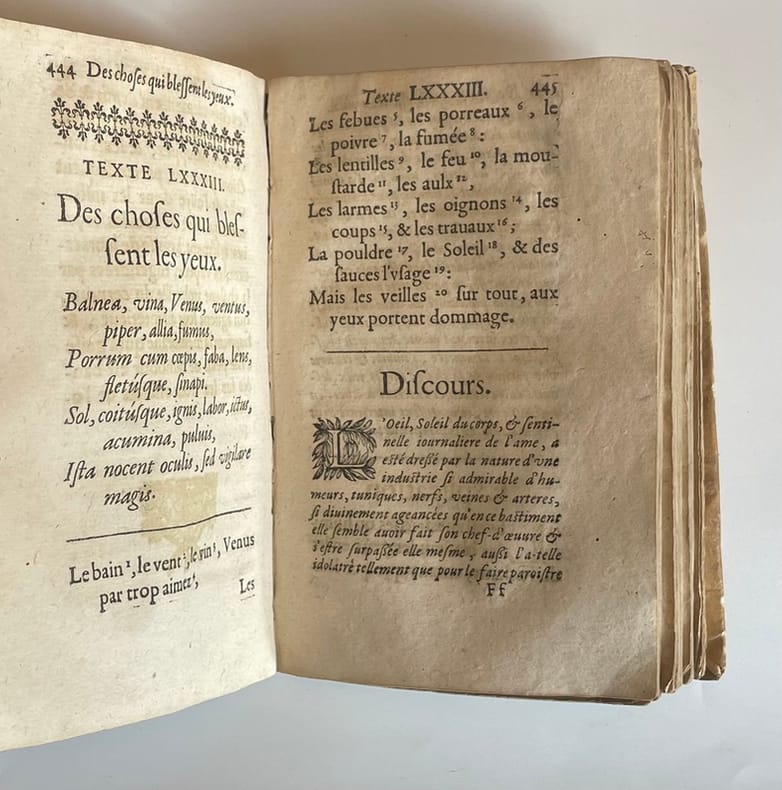 444 Des choſes qui bleſſent les yeux.
TEXTE LXXXIII.
Des choſes qui bleſ-
ſent les yeux.
Balnea, vina, Venus, ventus,
piper, allia, fumus,
Porrum cum cœpis, faba, lens,
fletúſque, ſinapi.
Sol, coitúſque, ignis, labor, ictus,
acumina, puluis,
Iſta nocent oculis, ſed vigilare
magis.
Le bain ¹, le vent ², le vin ³, Venus
par trop aimer ⁴,
Les
Texte LXXXIII. 445
Les febues ⁵, les porreaux ⁶, le
poivre ⁷, la fumée ⁸ :
Les lentilles ⁹, le feu ¹⁰, la mou-
ſtarde ¹¹, les aulx ¹²,
Les larmes ¹³, les oignons ¹⁴, les
coups ¹⁵, & les trauaux ¹⁶ ;
La pouldre ¹⁷, le Soleil ¹⁸, & des
ſauces l'vſage ¹⁹ :
Mais les veilles ²⁰ ſur tout, aux
yeux portent dommage.
Diſcours.
L'Oeil, Soleil du corps, & ſenti-
nelle iournaliere de l'ame, a
eſté dreßé par la nature d'vne
induſtrie ſi admirable d'hu-
meurs, tuniques, nerfs, veines & arteres,
ſi diuinement ageancées qu'en ce baſtiment
elle ſemble auoir fait ſon chef-d'œuure &
s'eſtre ſurpaſſée elle meſme, außi l'a-telle
idolatré tellement que pour le faire paroiſtre
Ff